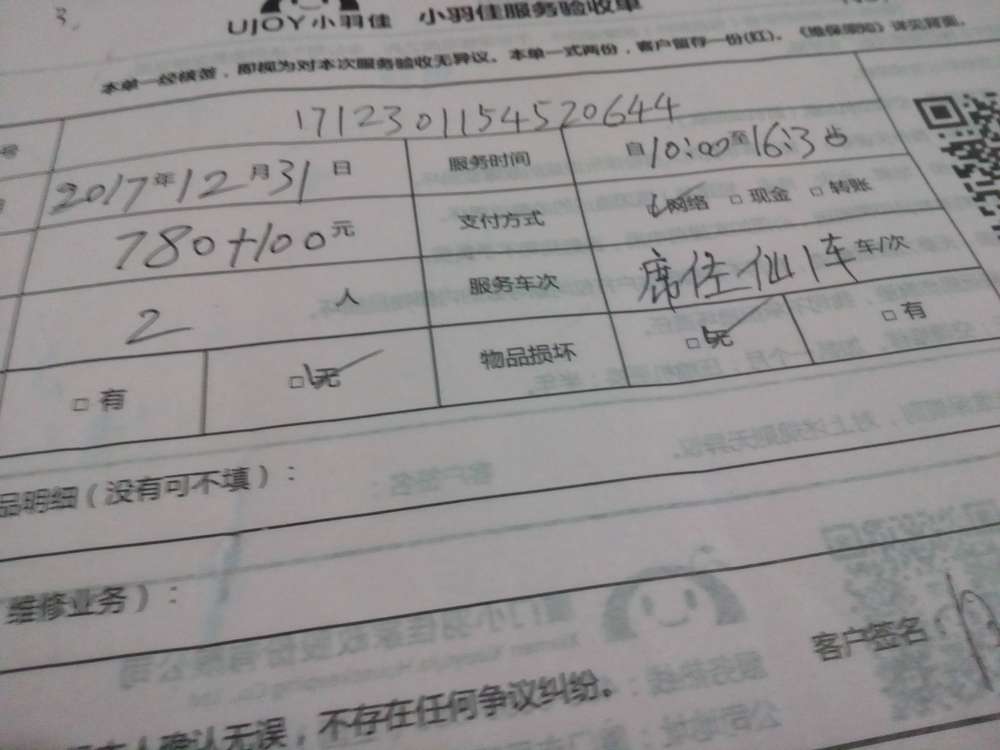 3.
UJOY小羽佳 小羽佳服务验收单
本单一经核签，即视为对本次服务验收无异议。本单一式两份，客户留存一份(红)。《维保须知》详见背面。
号 1712301154520644
2017年12月31日 服务时间 自10:00至16:30
780+100元 支付方式 网络 □ 现金 □ 转账
2 人 服务车次 车/次
□ 有 □ 无 物品损坏 □ 无 □ 有
品明细（没有可不填）：
维修业务）：
客户签名：
人确认无误，不存在任何争议纠纷。